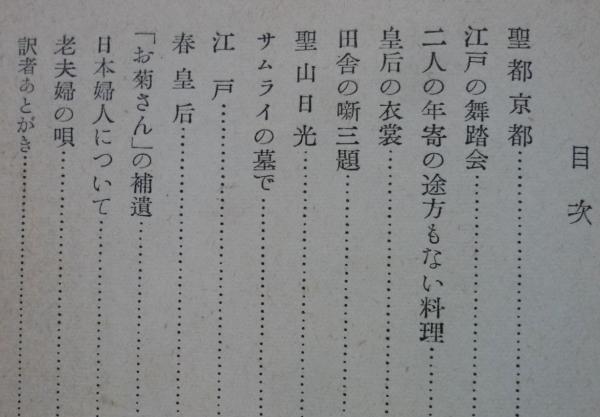 目次
聖都京都
江戸の舞踏会
二人の年寄の途方もない料理
皇后の衣裳
田舎の噺三題
聖山日光
サムライの墓で
江戸
春皇后
「お菊さん」の補遺
日本婦人について
老夫婦の唄
訳者あとがき